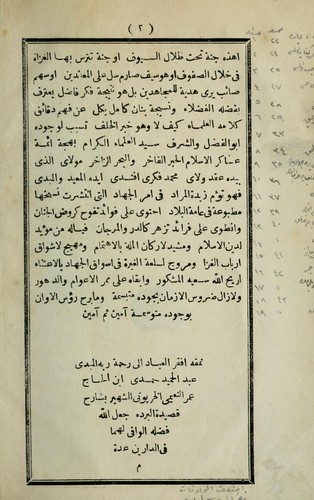 (٢)
اهذه جنة تحت ظلال السيوف او جنة تترس بها الغزاة
فى خلال الصفوف او هو سيف صارم سل على المعاندين او سهم
صائب يرى هدية للمجاهدين بل هو نتيجة فكر فاضل يعترف
بفضله الفضلاء ونسيجة بنان كامل يكل عن فهم دقائق
كلامه العلماء كيف لا وهو خير الخلف تسبب لوجوده
ابو الفضل والشرف سيد العلماء الكرام بهجة ائمة
عساكر الاسلام الحبر الفاخر والبحر الزاخر مولاى الذى
بيده عقد ولاى محمد فكرى افندى ايده المعيد والمبدى
فهو توئم زبدة المراد فى امر الجهاد التى انتشرت نسختها
مطبوعة فى عامة البلاد احتوى على فوائد تفوح كروض الجنان
وانطوى على فرائد تزهر كالدر والمرجان فياله من مؤيد
لدين الاسلام ومشيد لاركان الملة بالاهتمام ومهيج لاشواق
ارباب الغزا ومروج لسلعة الغيرة فى اسواق الجهاد بالاعتناء
اريح الله سعيه المشكور وابقاه على ممر الاعوام والدهور
ولا زال ضروس الازمان بجوده متبسمة وما برح رؤس الاوان
بوجوده متوسمة آمين ثم آمين
نمقه افقر العباد الى رحمة ربه المبدى
عبد الحميد حمدى ابن الحاج
عمر النعيمى الخربوتى الشهير بشارح
قصيدة البرده جعل الله
فضله الواقى لهما
فى الدارين عدة
م